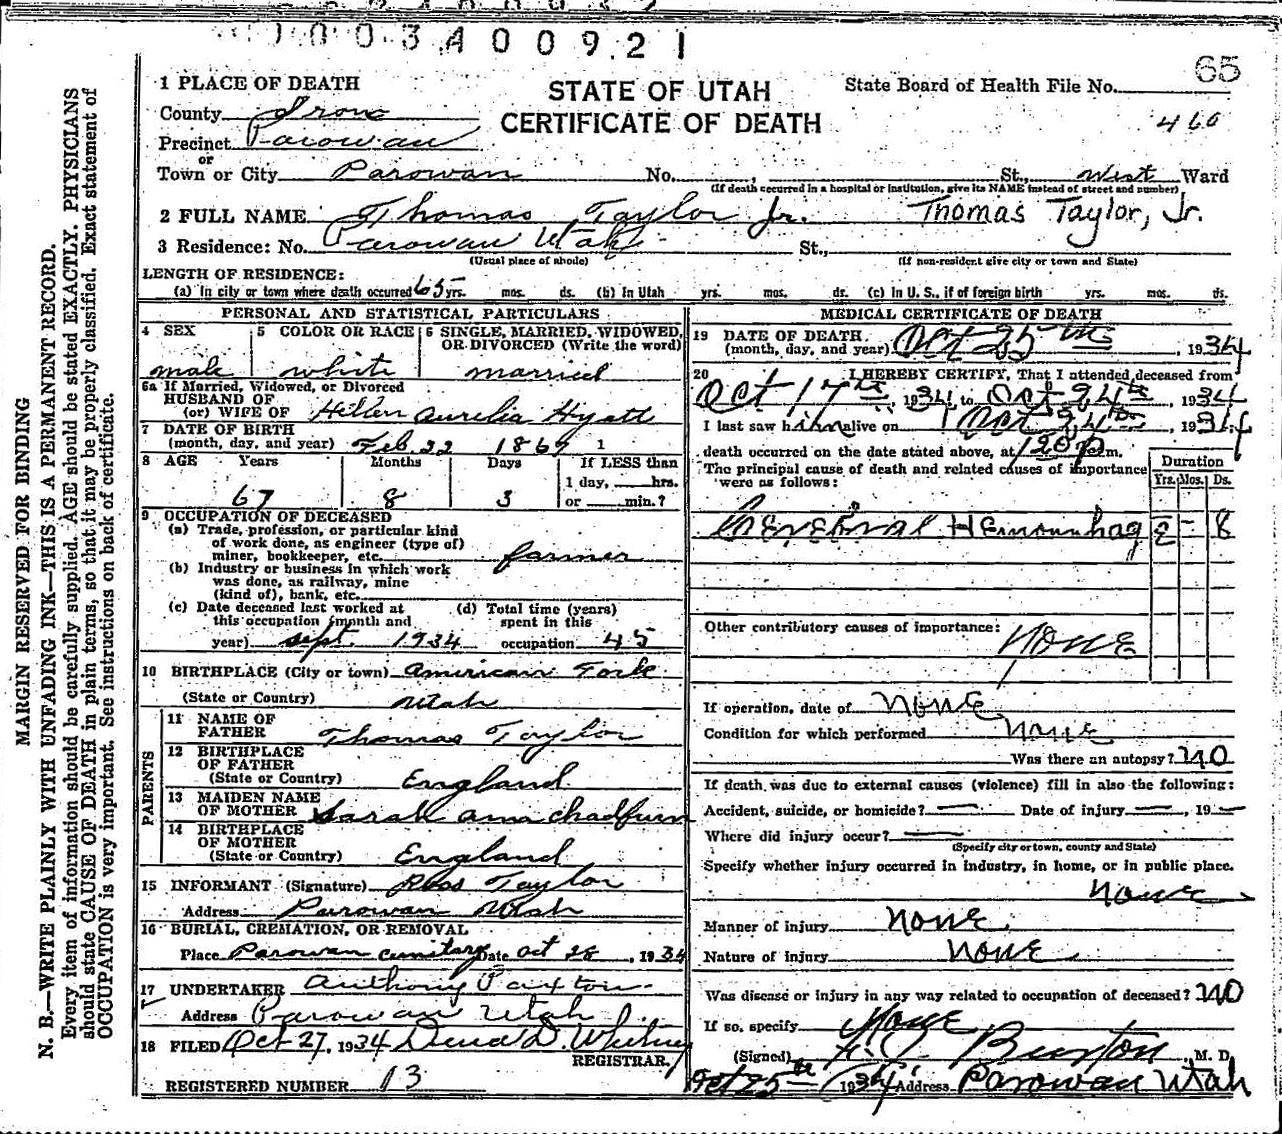 0003A00921
65
1 PLACE OF DEATH
STATE OF UTAH
State Board of Health File No.
County Iron
CERTIFICATE OF DEATH
460
Precinct Parowan
or
Town or City Parowan No. , St., West Ward
(If death occurred in a hospital or institution, give its NAME instead of street and number)
2 FULL NAME Thomas Taylor Jr. Thomas Taylor, Jr.
3 Residence: No. Parowan Utah St.,
(Usual place of abode) (If non-resident give city or town and State)
LENGTH OF RESIDENCE:
(a) In city or town where death occurred 65 yrs. mos. ds. (b) In Utah yrs. mos. ds. (c) In U. S., if of foreign birth yrs. mos. ds.
PERSONAL AND STATISTICAL PARTICULARS
4 SEX 5 COLOR OR RACE 6 SINGLE, MARRIED, WIDOWED, OR DIVORCED (Write the word)
male white married
6a If Married, Widowed, or Divorced
HUSBAND OF
(or) WIFE OF Hellen Aurelia Hyatt
7 DATE OF BIRTH
(month, day, and year) Feb. 22 1867 1
8 AGE Years Months Days If LESS than
1 day, hrs.
67 8 3 or min.?
9 OCCUPATION OF DECEASED
(a) Trade, profession, or particular kind
of work done, as engineer (type of)
miner, bookkeeper, etc. farmer
(b) Industry or business in which work
was done, as railway, mine
(kind of), bank, etc.
(c) Date deceased last worked at (d) Total time (years)
this occupation (month and spent in this
year) Sept. 1934 occupation 45
10 BIRTHPLACE (City or town) American Fork
(State or Country) Utah
PARENTS
11 NAME OF
FATHER Thomas Taylor
12 BIRTHPLACE
OF FATHER
(State or Country) England
13 MAIDEN NAME
OF MOTHER Sarah Ann
14 BIRTHPLACE
OF MOTHER
(State or Country) England
15 INFORMANT (Signature) Ross Taylor
Address Parowan Utah
16 BURIAL, CREMATION, OR REMOVAL
Place Parowan cemitary Date Oct 28, 1934
17 UNDERTAKER Anthony Paxton
Address Parowan Utah
18 FILED Oct 27, 1934 D. Whitney
REGISTRAR.
REGISTERED NUMBER 13
MEDICAL CERTIFICATE OF DEATH
19 DATE OF DEATH
(month, day, and year) Oct 25th, 1934
20 I HEREBY CERTIFY, That I attended deceased from
Oct 17th, 1934, to Oct 24th, 1934
I last saw him alive on Oct 24th, 1934
death occurred on the date stated above, at 120 p m.
The principal cause of death and related causes of importance
were as follows:
Duration
Yrs. Mos. Ds.
Cerebral Hemorrhage - 8
Other contributory causes of importance:
None
If operation, date of None
Condition for which performed None
Was there an autopsy? no
If death was due to external causes (violence) fill in also the following:
Accident, suicide, or homicide? — Date of injury —, 19—
Where did injury occur? —
(Specify city or town, county and State)
Specify whether injury occurred in industry, in home, or in public place.
None
Manner of injury None
Nature of injury None
Was disease or injury in any way related to occupation of deceased? no
If so, specify None
(Signed) Burton, M. D.
Oct 25th 1934 Address Parowan Utah
MARGIN RESERVED FOR BINDING
N. B.—WRITE PLAINLY WITH UNFADING INK—THIS IS A PERMANENT RECORD.
Every item of information should be carefully supplied. AGE should be stated EXACTLY. PHYSICIANS
should state CAUSE OF DEATH in plain terms, so that it may be properly classified. Exact statement of
OCCUPATION is very important. See instructions on back of certificate.